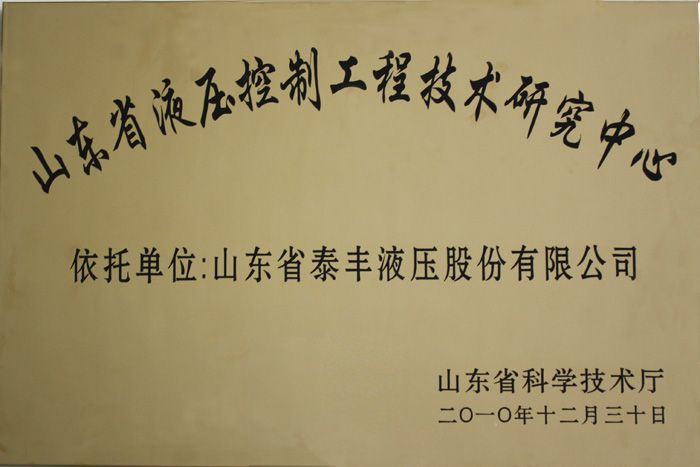 山东省液压控制工程技术研究中心
依托单位:山东省泰丰液压股份有限公司
山东省科学技术厅
二〇一〇年十二月三十日